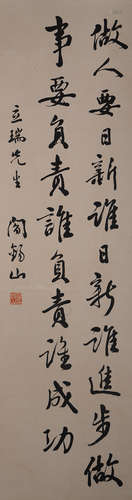 做人要日新誰日新誰進步做
事要負責誰負責誰成功
立瑞先生
閻錫山